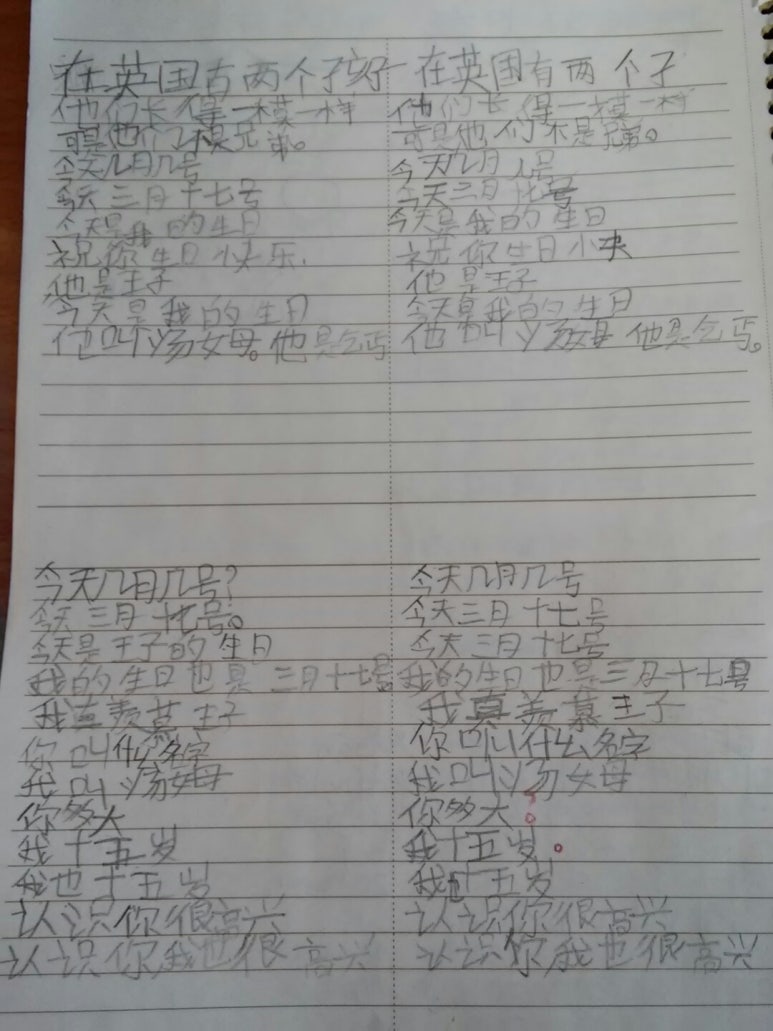 在英国有两个孩子 在英国有两个子
他们长得一模一样 他们长得一模一样
可是他们不是兄弟。 可是他们不是兄弟。
今天几月几号 今天几月几号
今天三月十七号 今天三月十七号
今天是我的生日 今天是我的生日
祝你生日快乐. 祝你生日快
他是王子 他是王子
今天是我的生日 今天是我的生日
他叫汤姆。他是乞丐 他叫汤姆 他是乞丐。
今天几月几号? 今天几月几号
今天三月十七号。 今天三月十七号
今天是王子的生日 今天三月十七号
我的生日也是三月十七号 我的生日也是三月十七号
我真羡慕王子 我真羡慕王子
你叫什么名字 你叫什么名字
我叫汤姆 我叫汤姆
你多大 你多大?
我十五岁 我十五岁。
我也十五岁 我也十五岁
认识你很高兴 认识你很高兴
认识你我也很高兴 认识你我也很高兴